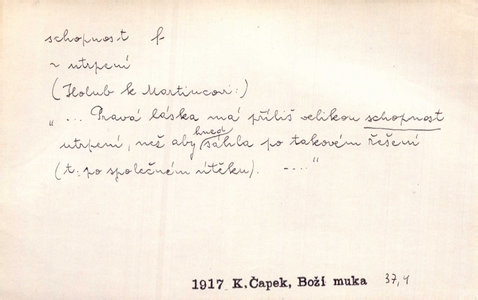 schopnost f
~ utrpení
(Holub k Martincovi:)
„... Pravá láska má příliš velikou schopnost
utrpení, než aby hned sáhla po takovém řešení
(t: po společném útěku). ...."
1917 K.Čapek, Boží muka 37,4